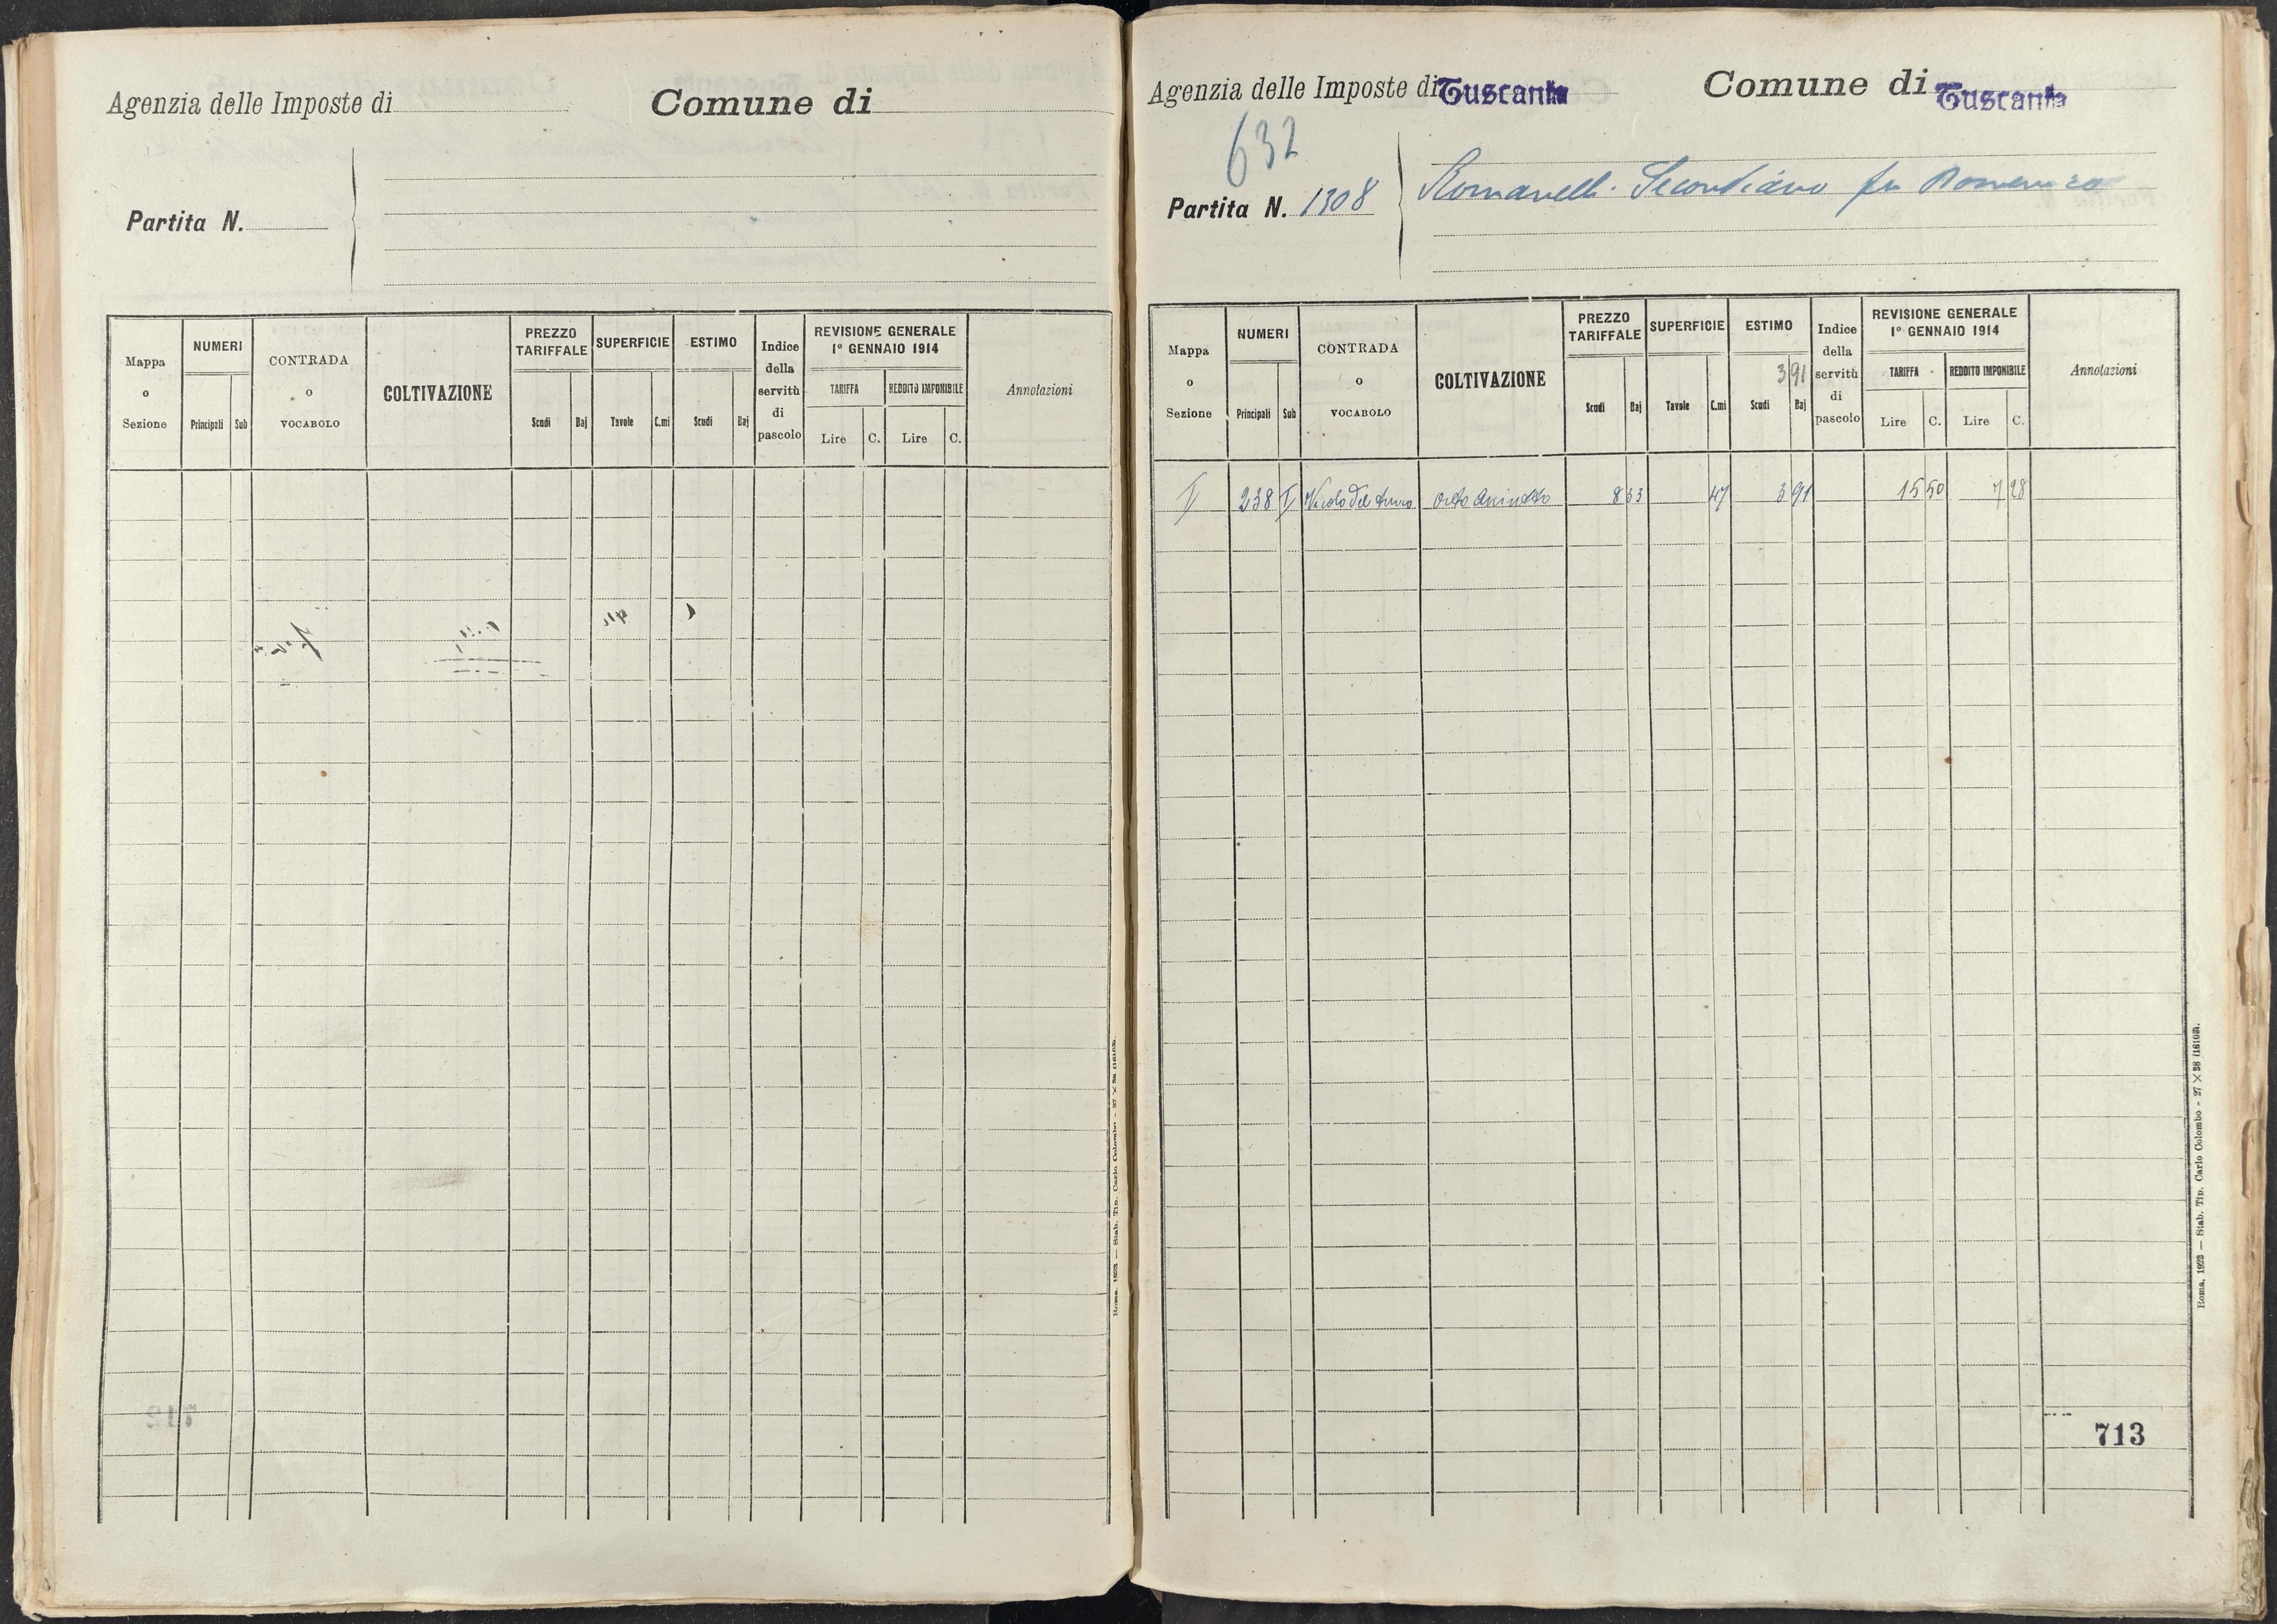 Agenzia delle Imposte di
Comune di
Partita N.
Mappa o Sezione
NUMERI
Principali Sub
CONTRADA o VOCABOLO
COLTIVAZIONE
PREZZO TARIFFALE
Scudi Baj
SUPERFICIE
Tavole C.mi
ESTIMO
Scudi Baj
Indice della servitù di pascolo
REVISIONE GENERALE 1° GENNAIO 1914
TARIFFA
Lire C.
REDDITO IMPONIBILE
Lire C.
Annotazioni
Roma, 1923 — Stab. Tip. Carlo Colombo - 27 × 38
Agenzia delle Imposte di Tuscania
Comune di Tuscania
632
Partita N. 1308
Romanelli Secondiano fu Domenico
Mappa o Sezione
NUMERI
Principali Sub
CONTRADA o VOCABOLO
COLTIVAZIONE
PREZZO TARIFFALE
Scudi Baj
SUPERFICIE
Tavole C.mi
ESTIMO
3 91
Scudi Baj
Indice della servitù di pascolo
REVISIONE GENERALE 1° GENNAIO 1914
TARIFFA
Lire C.
REDDITO IMPONIBILE
Lire C.
Annotazioni
238 Vicolo del Orto Asciutto 8 33 47 3 91 15 50 7 28
713
Roma, 1923 — Stab. Tip. Carlo Colombo - 27 × 38